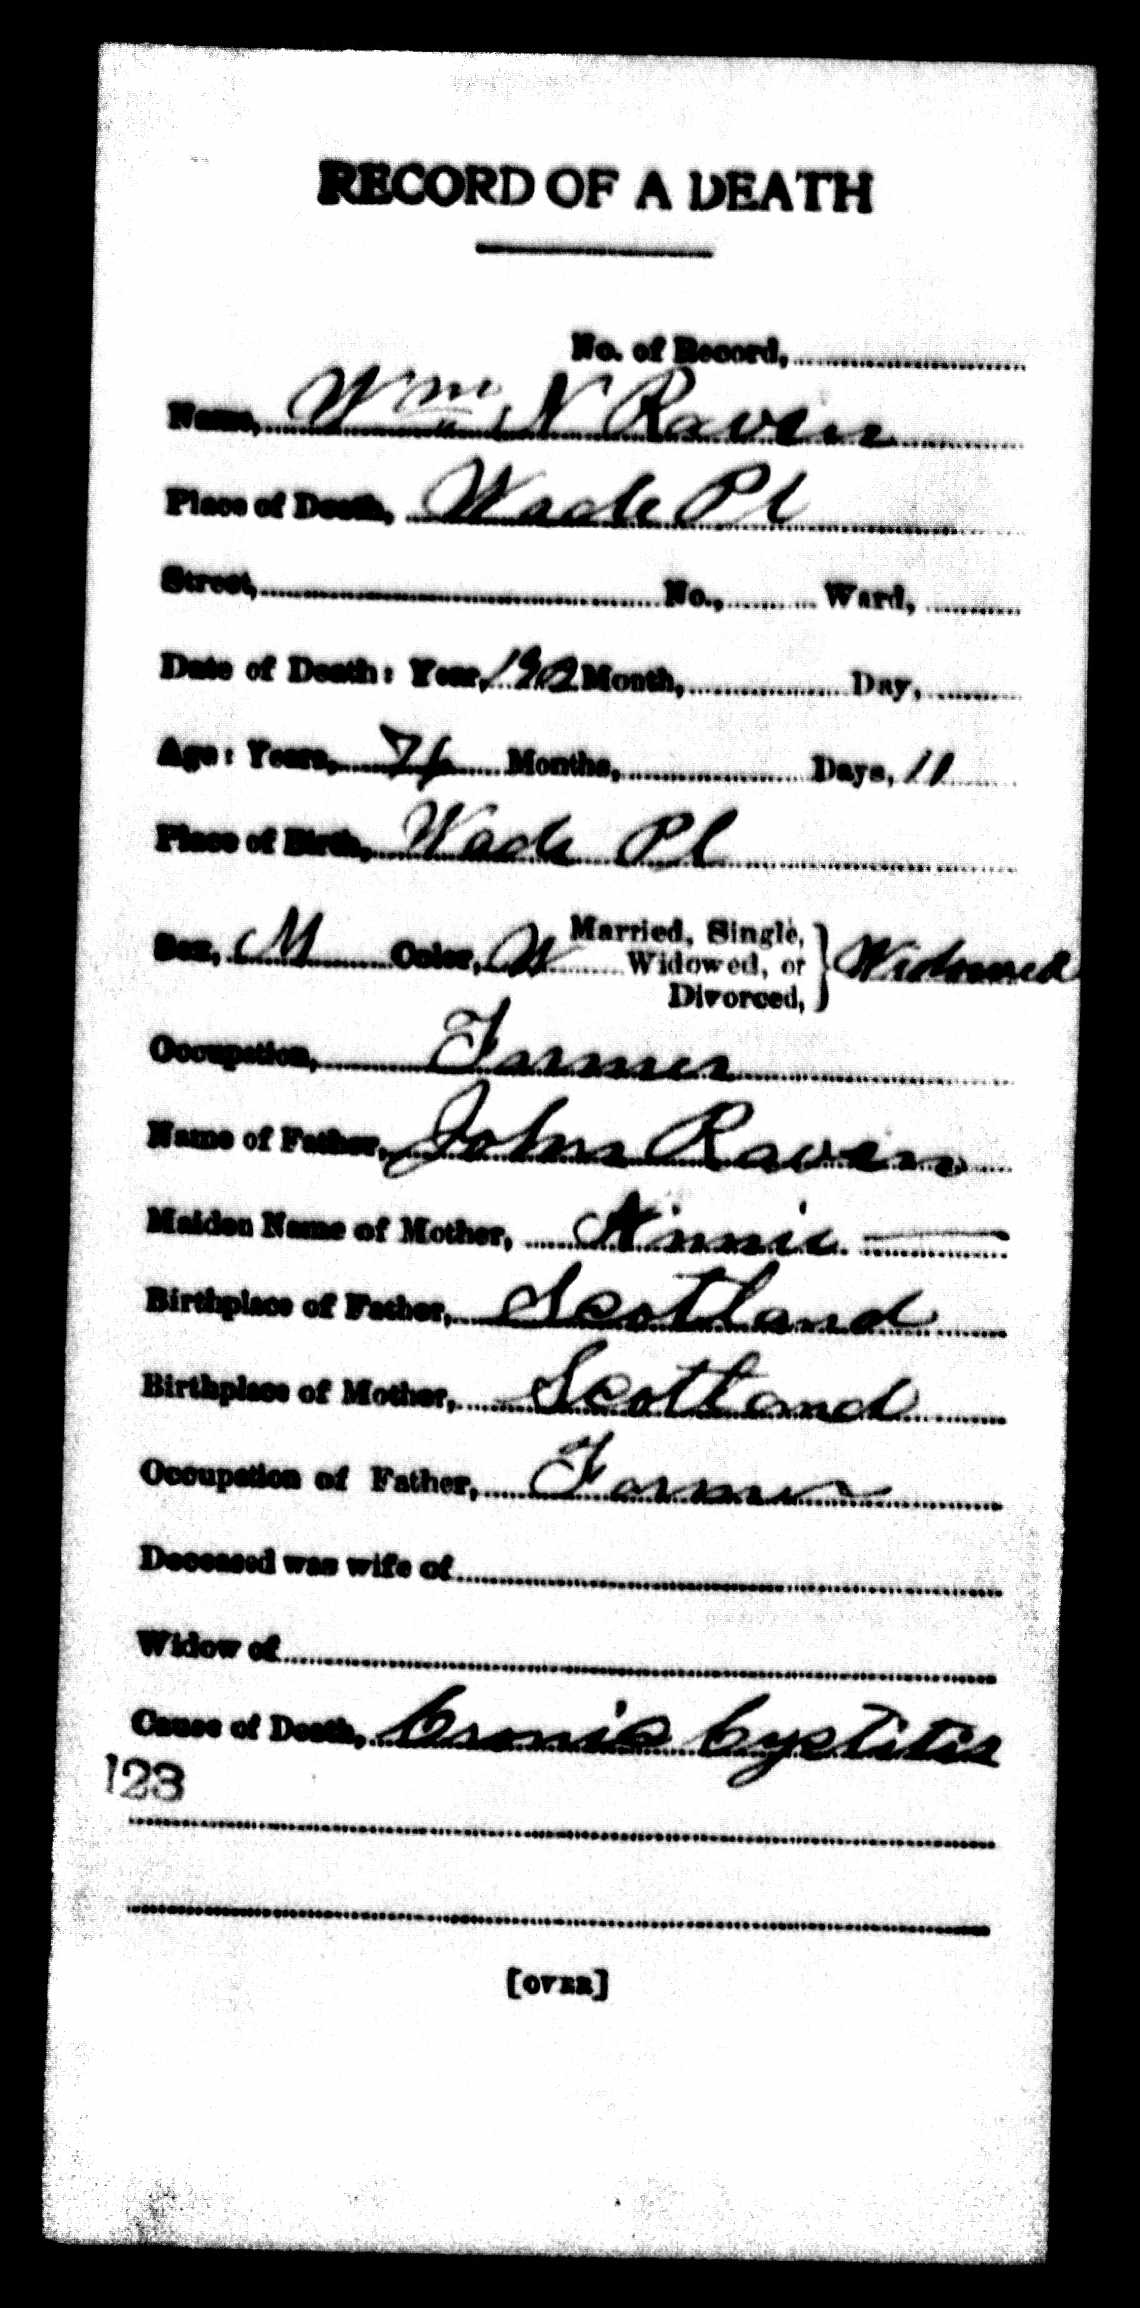 RECORD OF A DEATH
No. of Record,
Name, Wm N Raven
Place of Death, Wade Pl
Street, No., Ward,
Date of Death: Year, 1902 Month, Day,
Age: Years, 76 Months, Days, 11
Place of Birth, Wade Pl
Sex, M Color, W Married, Single, Widowed, or Divorced, } Widowed
Occupation, Farmer
Name of Father, John Raven
Maiden Name of Mother, Annie —
Birthplace of Father, Scotland
Birthplace of Mother, Scotland
Occupation of Father, Farmer
Deceased was wife of
Widow of
Cause of Death, Cronic Cystitis
123
[OVER]